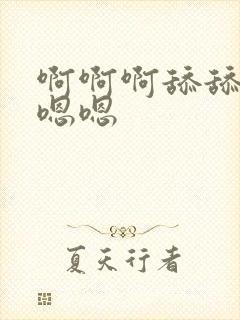 啊啊啊舔舔
嗯嗯
夏天行者